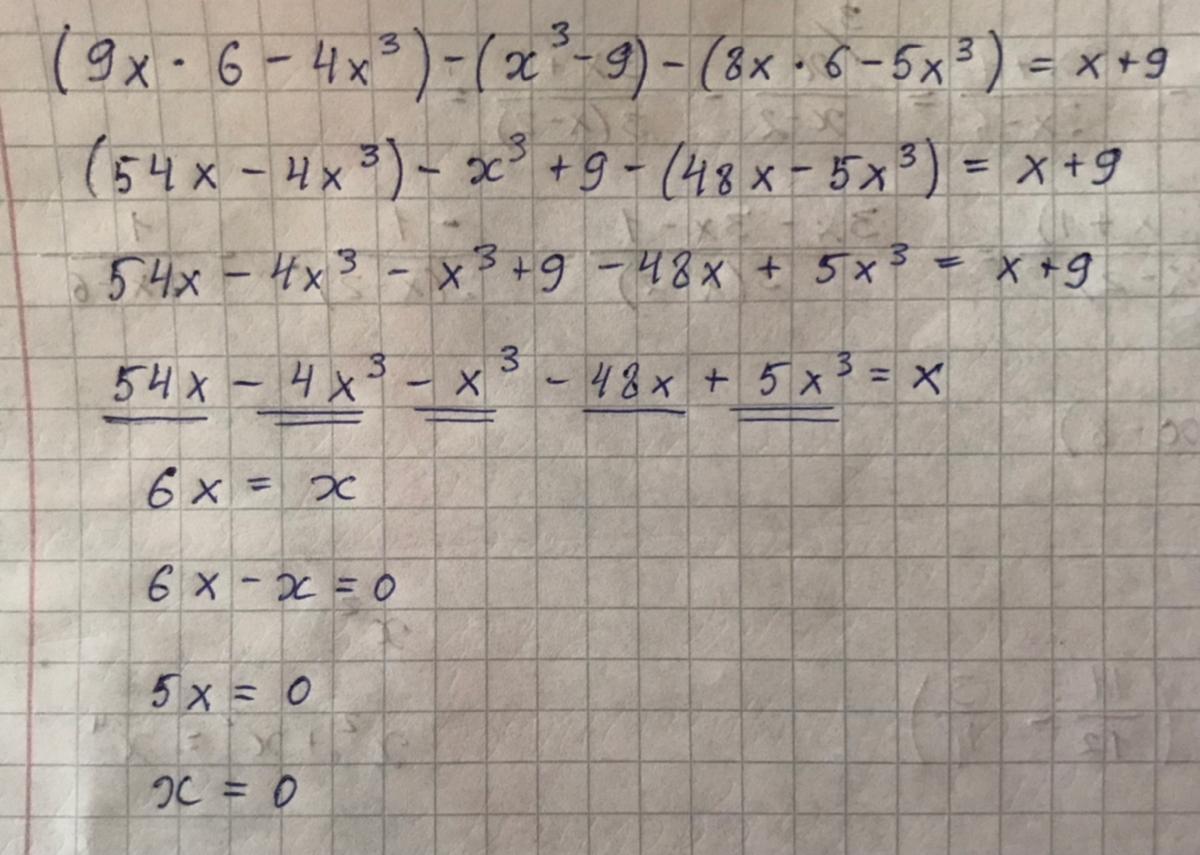 (9x · 6 - 4x³) - (x³ - 9) - (8x · 6 - 5x³) = x + 9
(54x - 4x³) - x³ + 9 - (48x - 5x³) = x + 9
54x - 4x³ - x³ + 9 - 48x + 5x³ = x + 9
54x - 4x³ - x³ - 48x + 5x³ = x
6x = x
6x - x = 0
5x = 0
x = 0